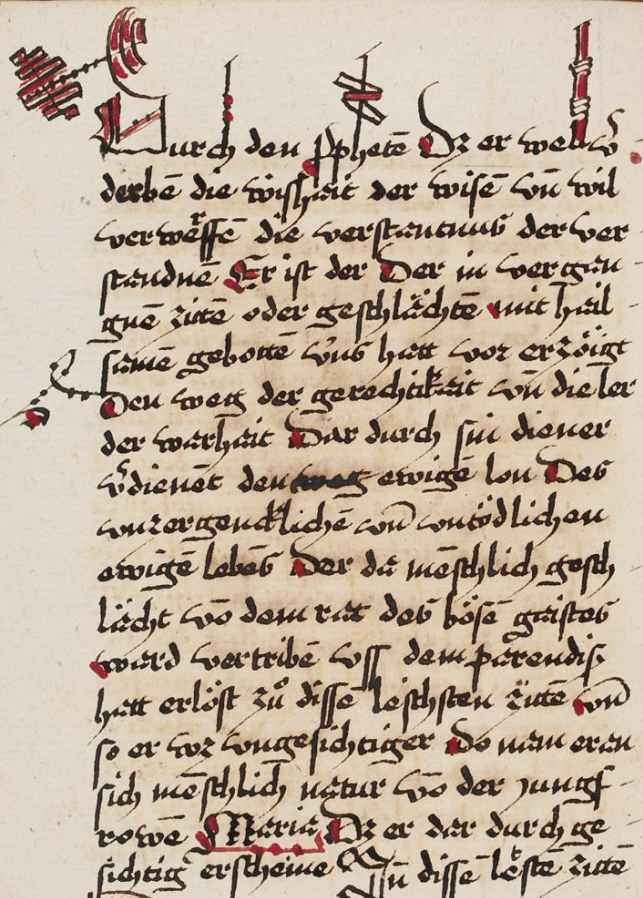 Durch den ppheten Dz er well v̄
derbē die wishait der wisē vn̄ wil
verwerffē die verstantnus der ver
standnē Er ist der Der in vergan
gnē zitē oder geschlächtē mit hail
samē gebottē vns hatt vor erzöigt
Den weg der gerechtikait vn̄ die ler
der warhait Dar durch sin diener
v̄dienet den ewigē lon Des
vnzergencklichē vn̄ vntödlichen
ewigē lebēs Der da mēschlich gesch
lächt vō dem rat des bösē gaistes
ward vertribē vss dem paredis
hatt erlöst zů dissē leschsten zitē vn̄
so er wz vngesichtiger Do nam er an
sich mēschlich natur vō der jungf
rowē Maria Dz er dar durch ge
sichtig erscheine In dissē lestē zitē